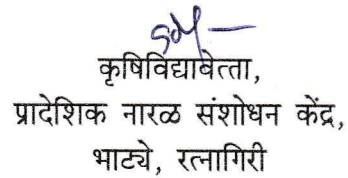 sd/-
कृषिविद्यावेत्ता,
प्रादेशिक नारळ संशोधन केंद्र,
भाट्ये, रत्नागिरी